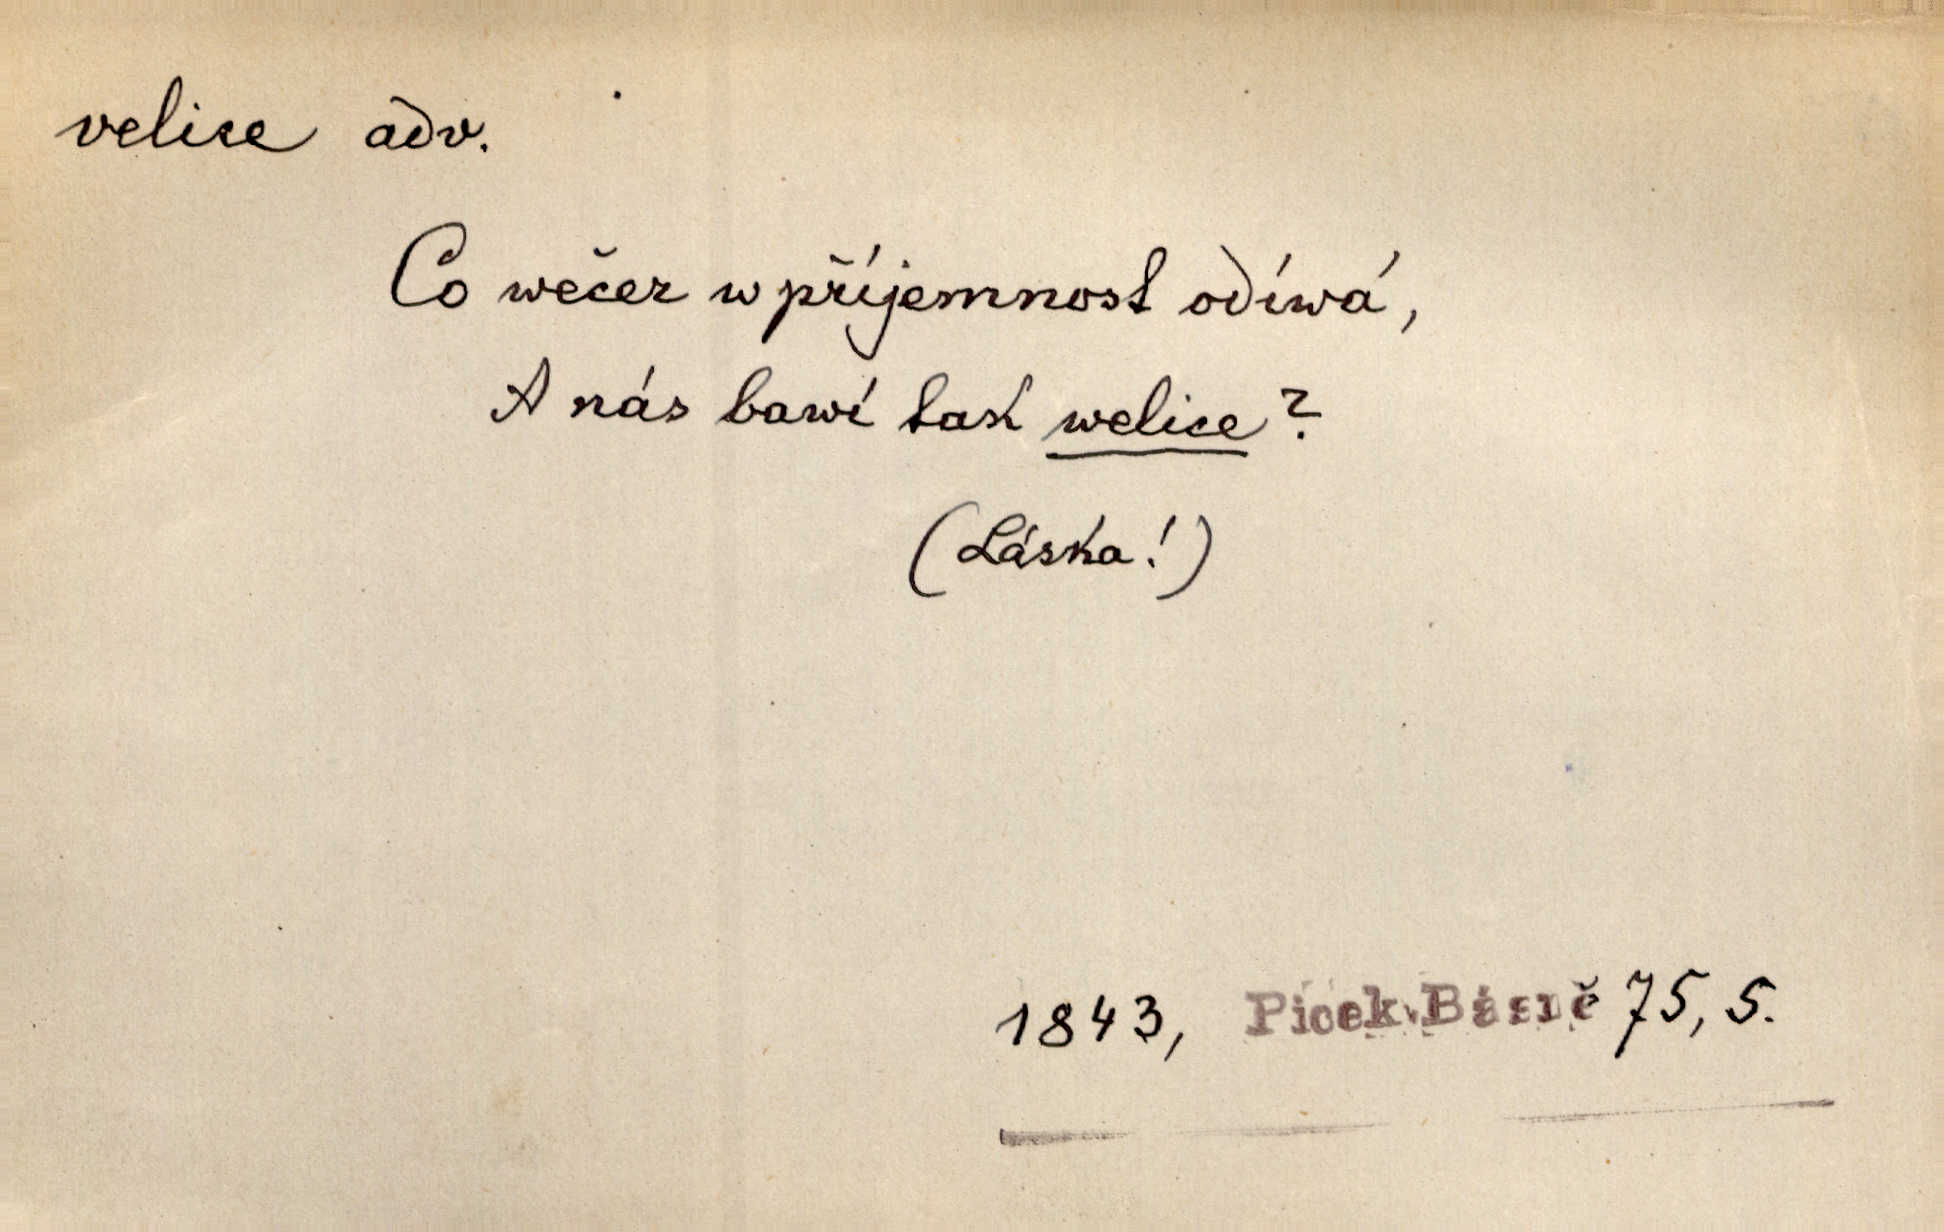 velice adv.
Co wečer w příjemnost odíwá,
A nás bawí tak welice?
(Láska!)
1843, Picek Básně 75, 5.